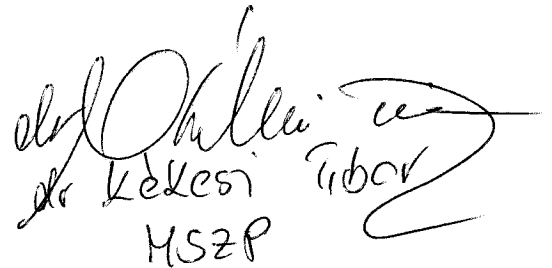 dr Kékesi Tibor
MSZP